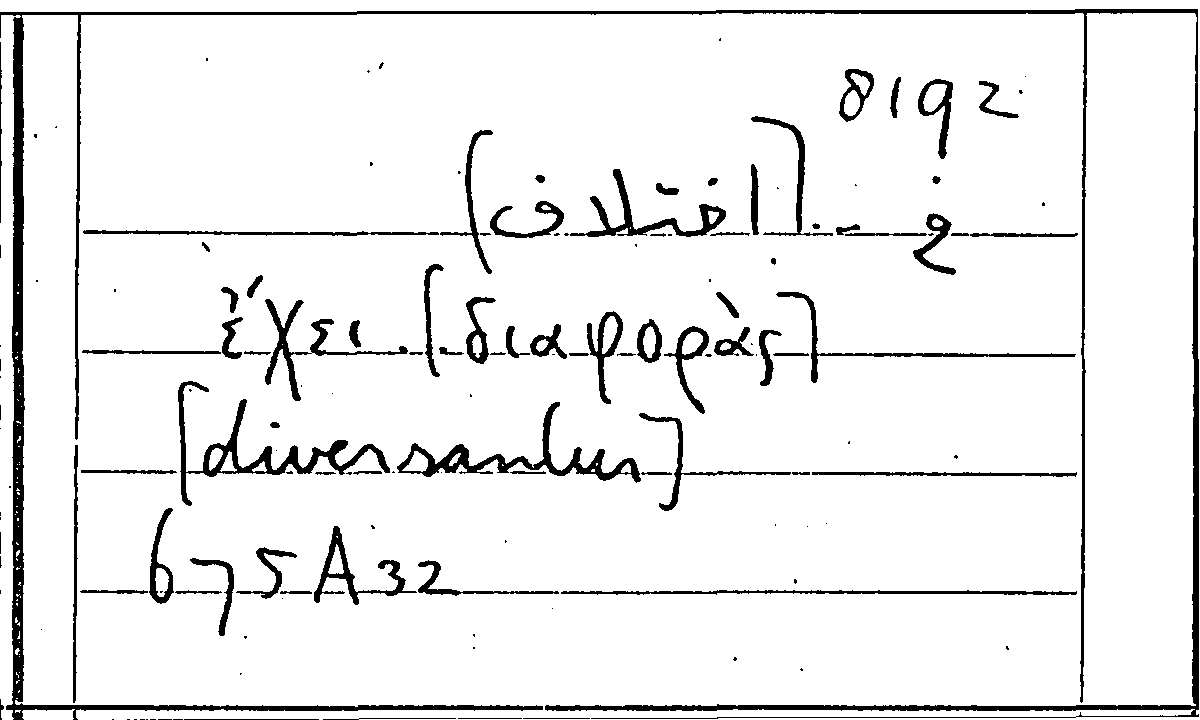 8192
في .. [اختلاف]
ἔχει .. [διαφοράς]
[diversantur]
675 A 32